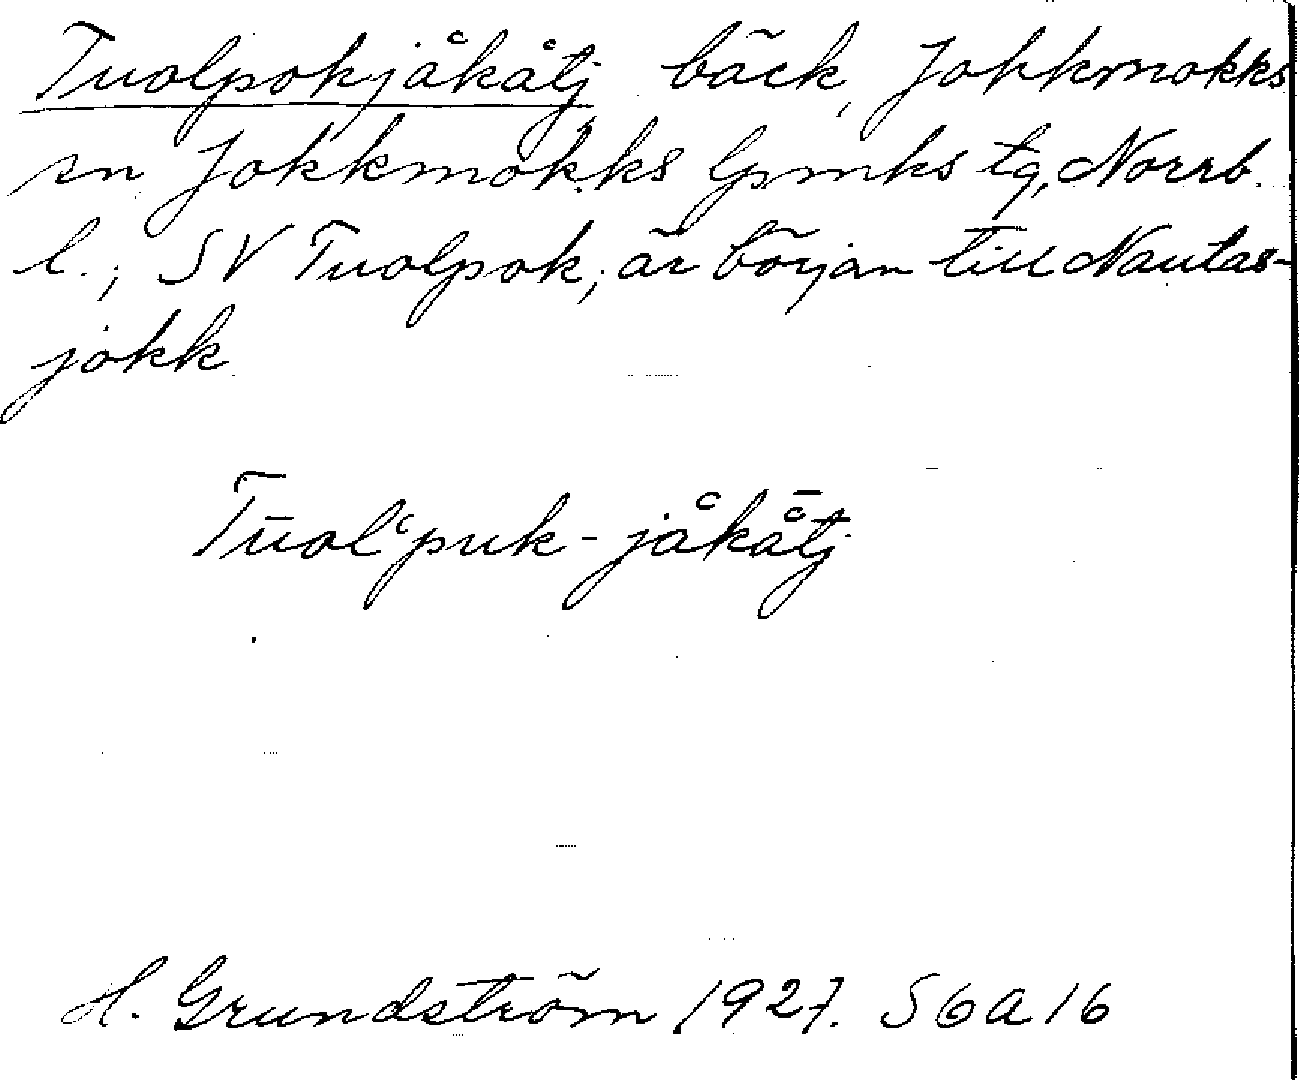 Tuolpokjåkåtj bäck, Jokkmokks
sn Jokkmokks lpmks tg, Norrb.
l., SV Tuolpok, är början till Nautas-
jokk
Tūolʿpuk-jåkå̄tj
H. Grundström 1927. S6a16